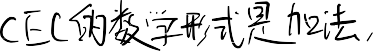 CEC的数学形式是加法,